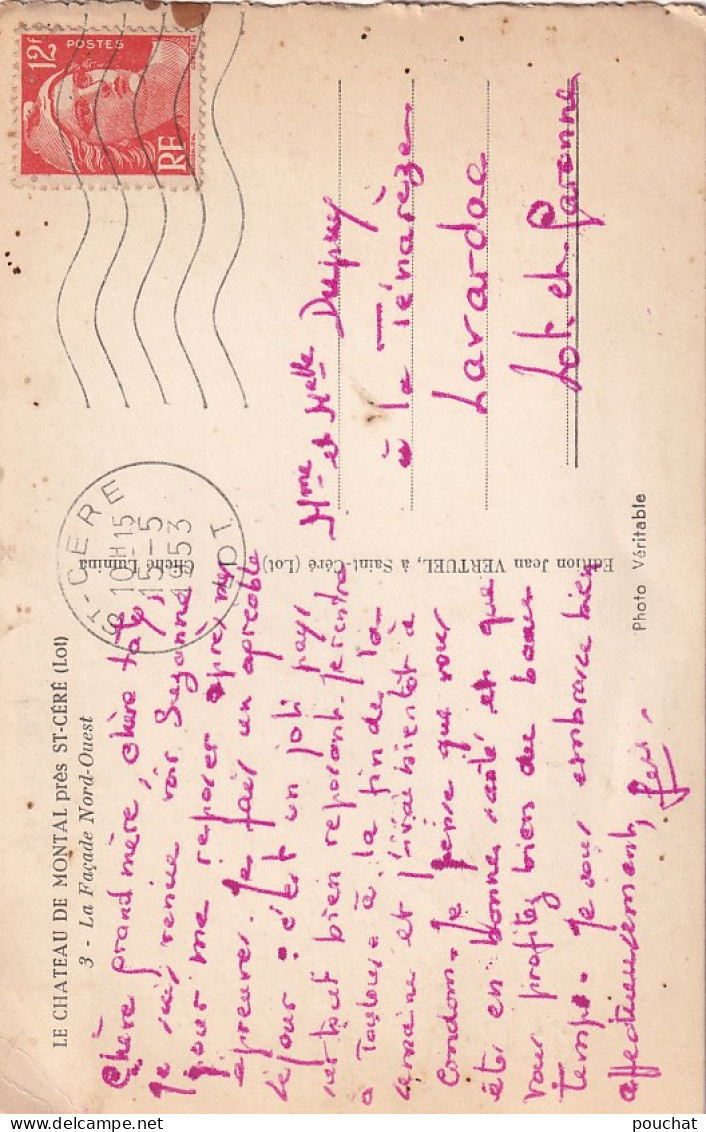 LE CHATEAU DE MONTAL près ST-CÉRÉ (Lot)
3 - La Façade Nord-Ouest
Chère grand mère, chère tate,
Je suis venue voir Suzanne
pour me reposer après mes
épreuves. Je fais un agréable
séjour : c'est un joli pays
surtout bien reposant. Je rentre
à Toulouse à la fin de la
semaine et j'irai bientôt à
Condom. Je pense que vous
êtes en bonne santé et que
vous profitez bien du beau
temps. Je vous embrasse bien
affectueusement,
Edition Jean VERTUEL, à Saint-Céré (Lot)
Cliché Lumina
Photo Véritable
ST-CÉRÉ
10H15
15-5
1953
LOT
12F
POSTES
RF
Mme et Melle Dupuy
à la Ténarèze
Lavardac
Lot-et-Garonne
pouchat